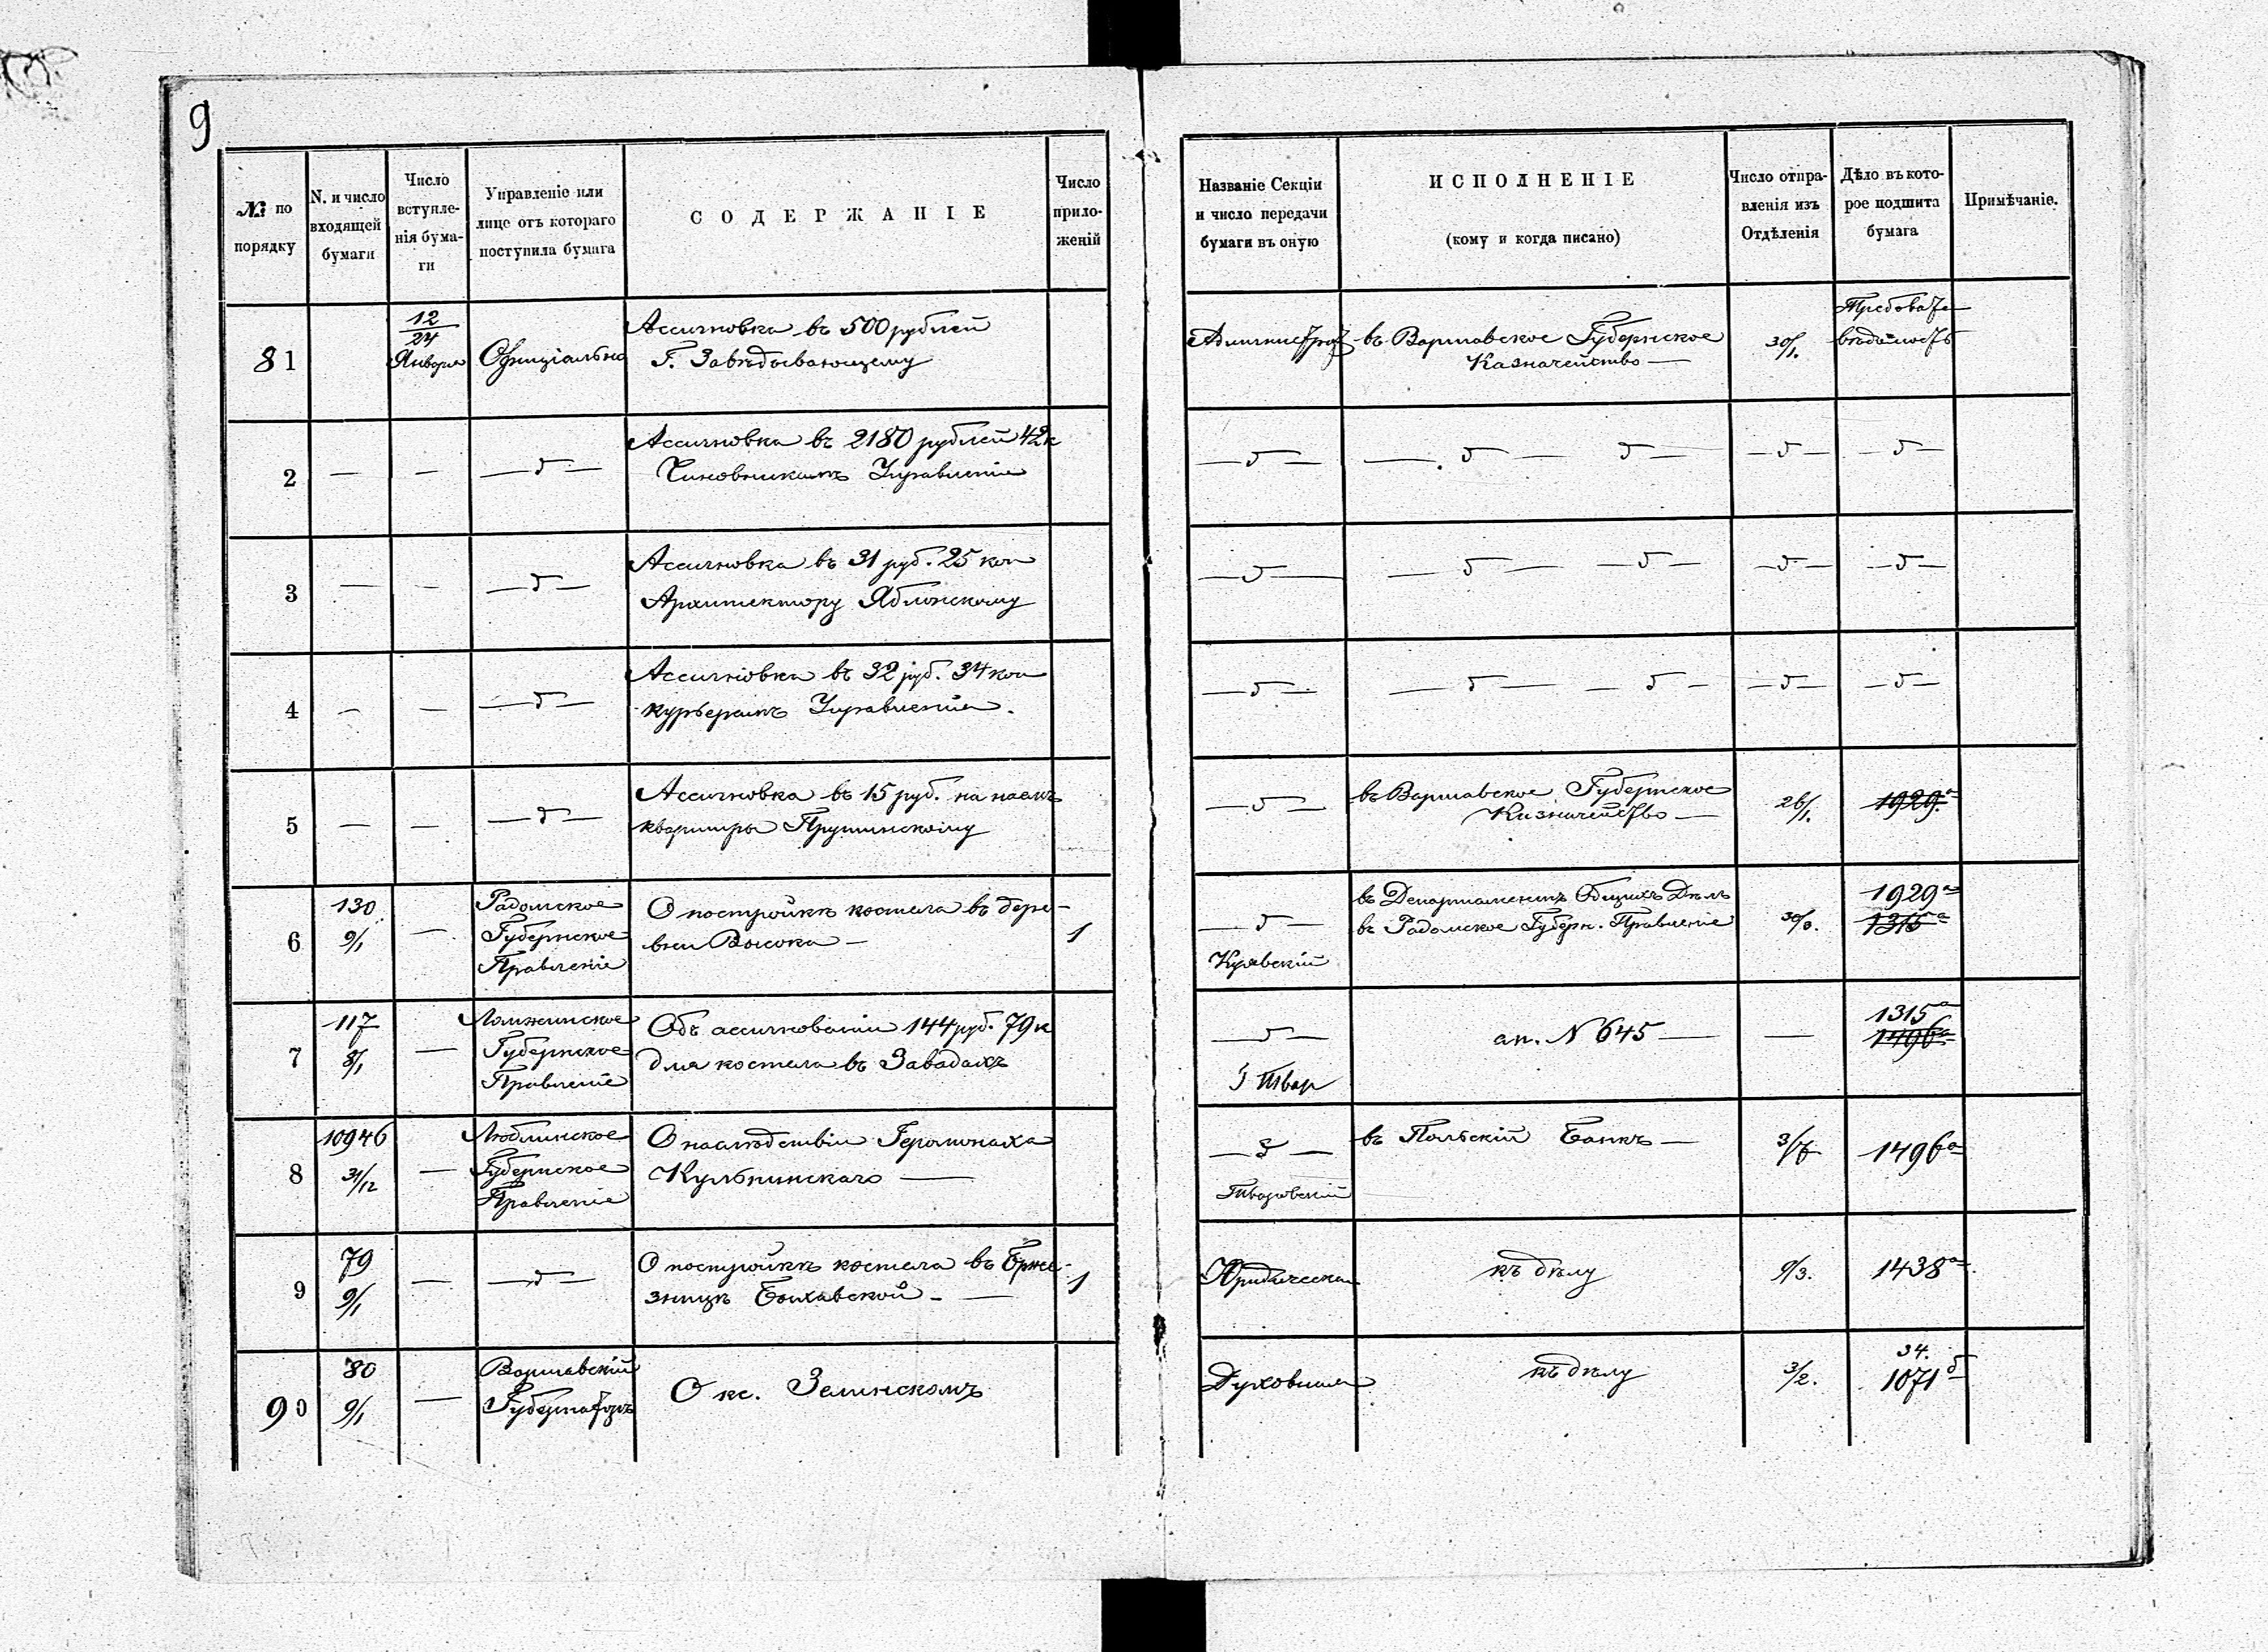 9
№ по порядку
N. и число входящей бумаги
Число вступле-
нія бума-
ги
Управленіе или
лице отъ котораго
поступила бумага
СОДЕРЖАНІЕ
Число
прило-
женій
Названіе Секціи
и число передачи
бумаги въ оную
ИСПОЛНЕНІЕ
(кому и когда писано)
Число отпра-
вленія изъ
Отдѣленія
Дѣло въ кото-
рое подшита
бумага
Примѣчаніе.
81
12/24
Января
Офиціально
Ассигновка въ 500 рублей
Г. Завѣдывающему
въ Варшавское Губернское
Казначейство —
30/1.
вѣдомость
2
— — —"—
Ассигновка въ 2180 рублей 42к
Чиновникамъ Управленія
—"— —"— —"— —"— —"—
3
— — —"—
Ассигновка въ 31 руб. 25 коп
Архитектору Яблонскому
—"— —"— —"— —"— —"—
4
— — —"—
Ассигновка въ 32 руб. 34 коп
курьерамъ Управленія.
—"— —"— —"— —"— —"—
5
— — —"—
Ассигновка въ 15 руб. на наемъ
квартиры Прушинскому
—"—
въ Варшавское Губернское
Казначейство —
26/1.
1929а
6
130
9/1
—
Радомское
Губернское
Правленіе
О постройкѣ костела въ дере-
вни Высока —
1
—"—
Куявскій
въ Департаментъ Общихъ Дѣлъ
въ Радомское Губерн. Правленіе
30/8.
1929а
1315а
7
117
8/1
—
Ломжинское
Губернское
Правленіе
Объ ассигнованіи 144 руб. 79к
для костела въ Завадахъ
—"—
Твар
ап. N 645 —
—
1315а
1496а
8
10946
31/12
—
Люблинское
Губернское
Правленіе
О наслѣдствіи Геромонаха
Кульчинскаго —
—"—
Тваровскій
въ Польскій Банкъ —
1496а
9
79
9/1
—
—"—
О постройкѣ костела въ Брже-
зницѣ Быхавской —
1
Юридическая
къ дѣлу
9/3.
1438а
90
80
9/1
—
Варшавскій
Губернаторъ
О кс. Зелинскомъ
Духовная
къ дѣлу
3/2.
34.
1071б